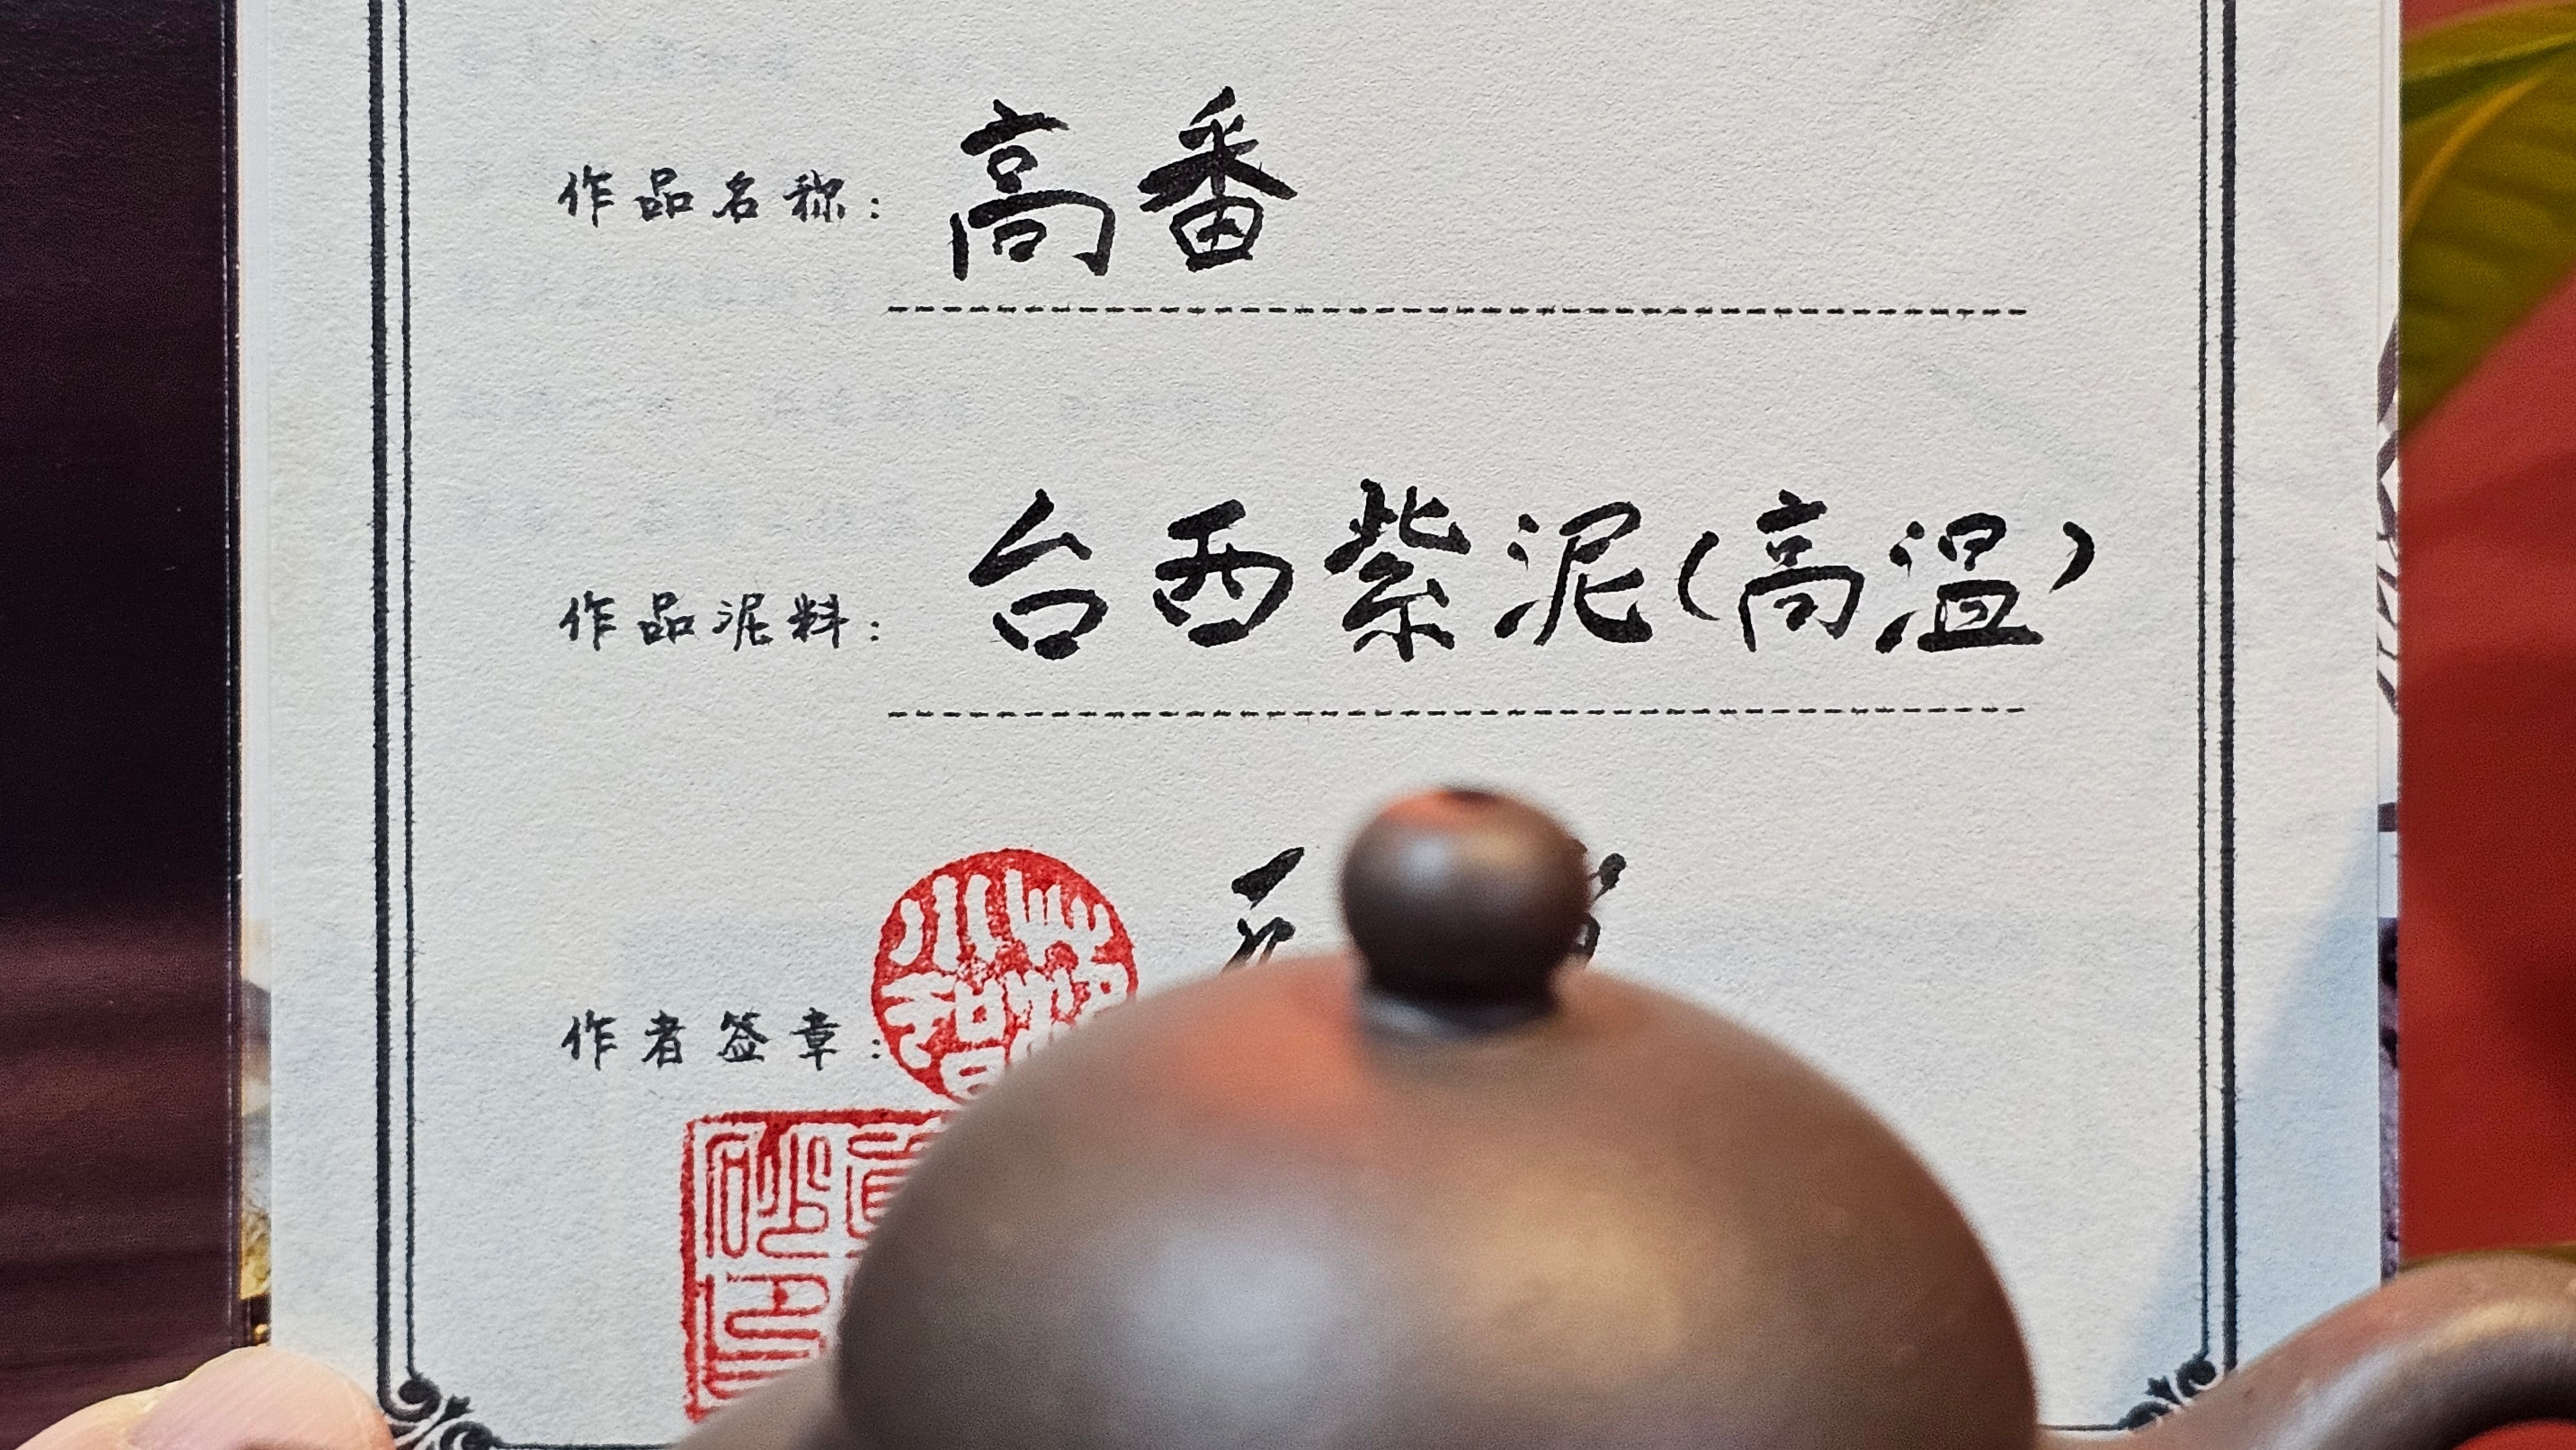 作品名称: 高番
作品泥料: 台西紫泥(高温)
作者签章: